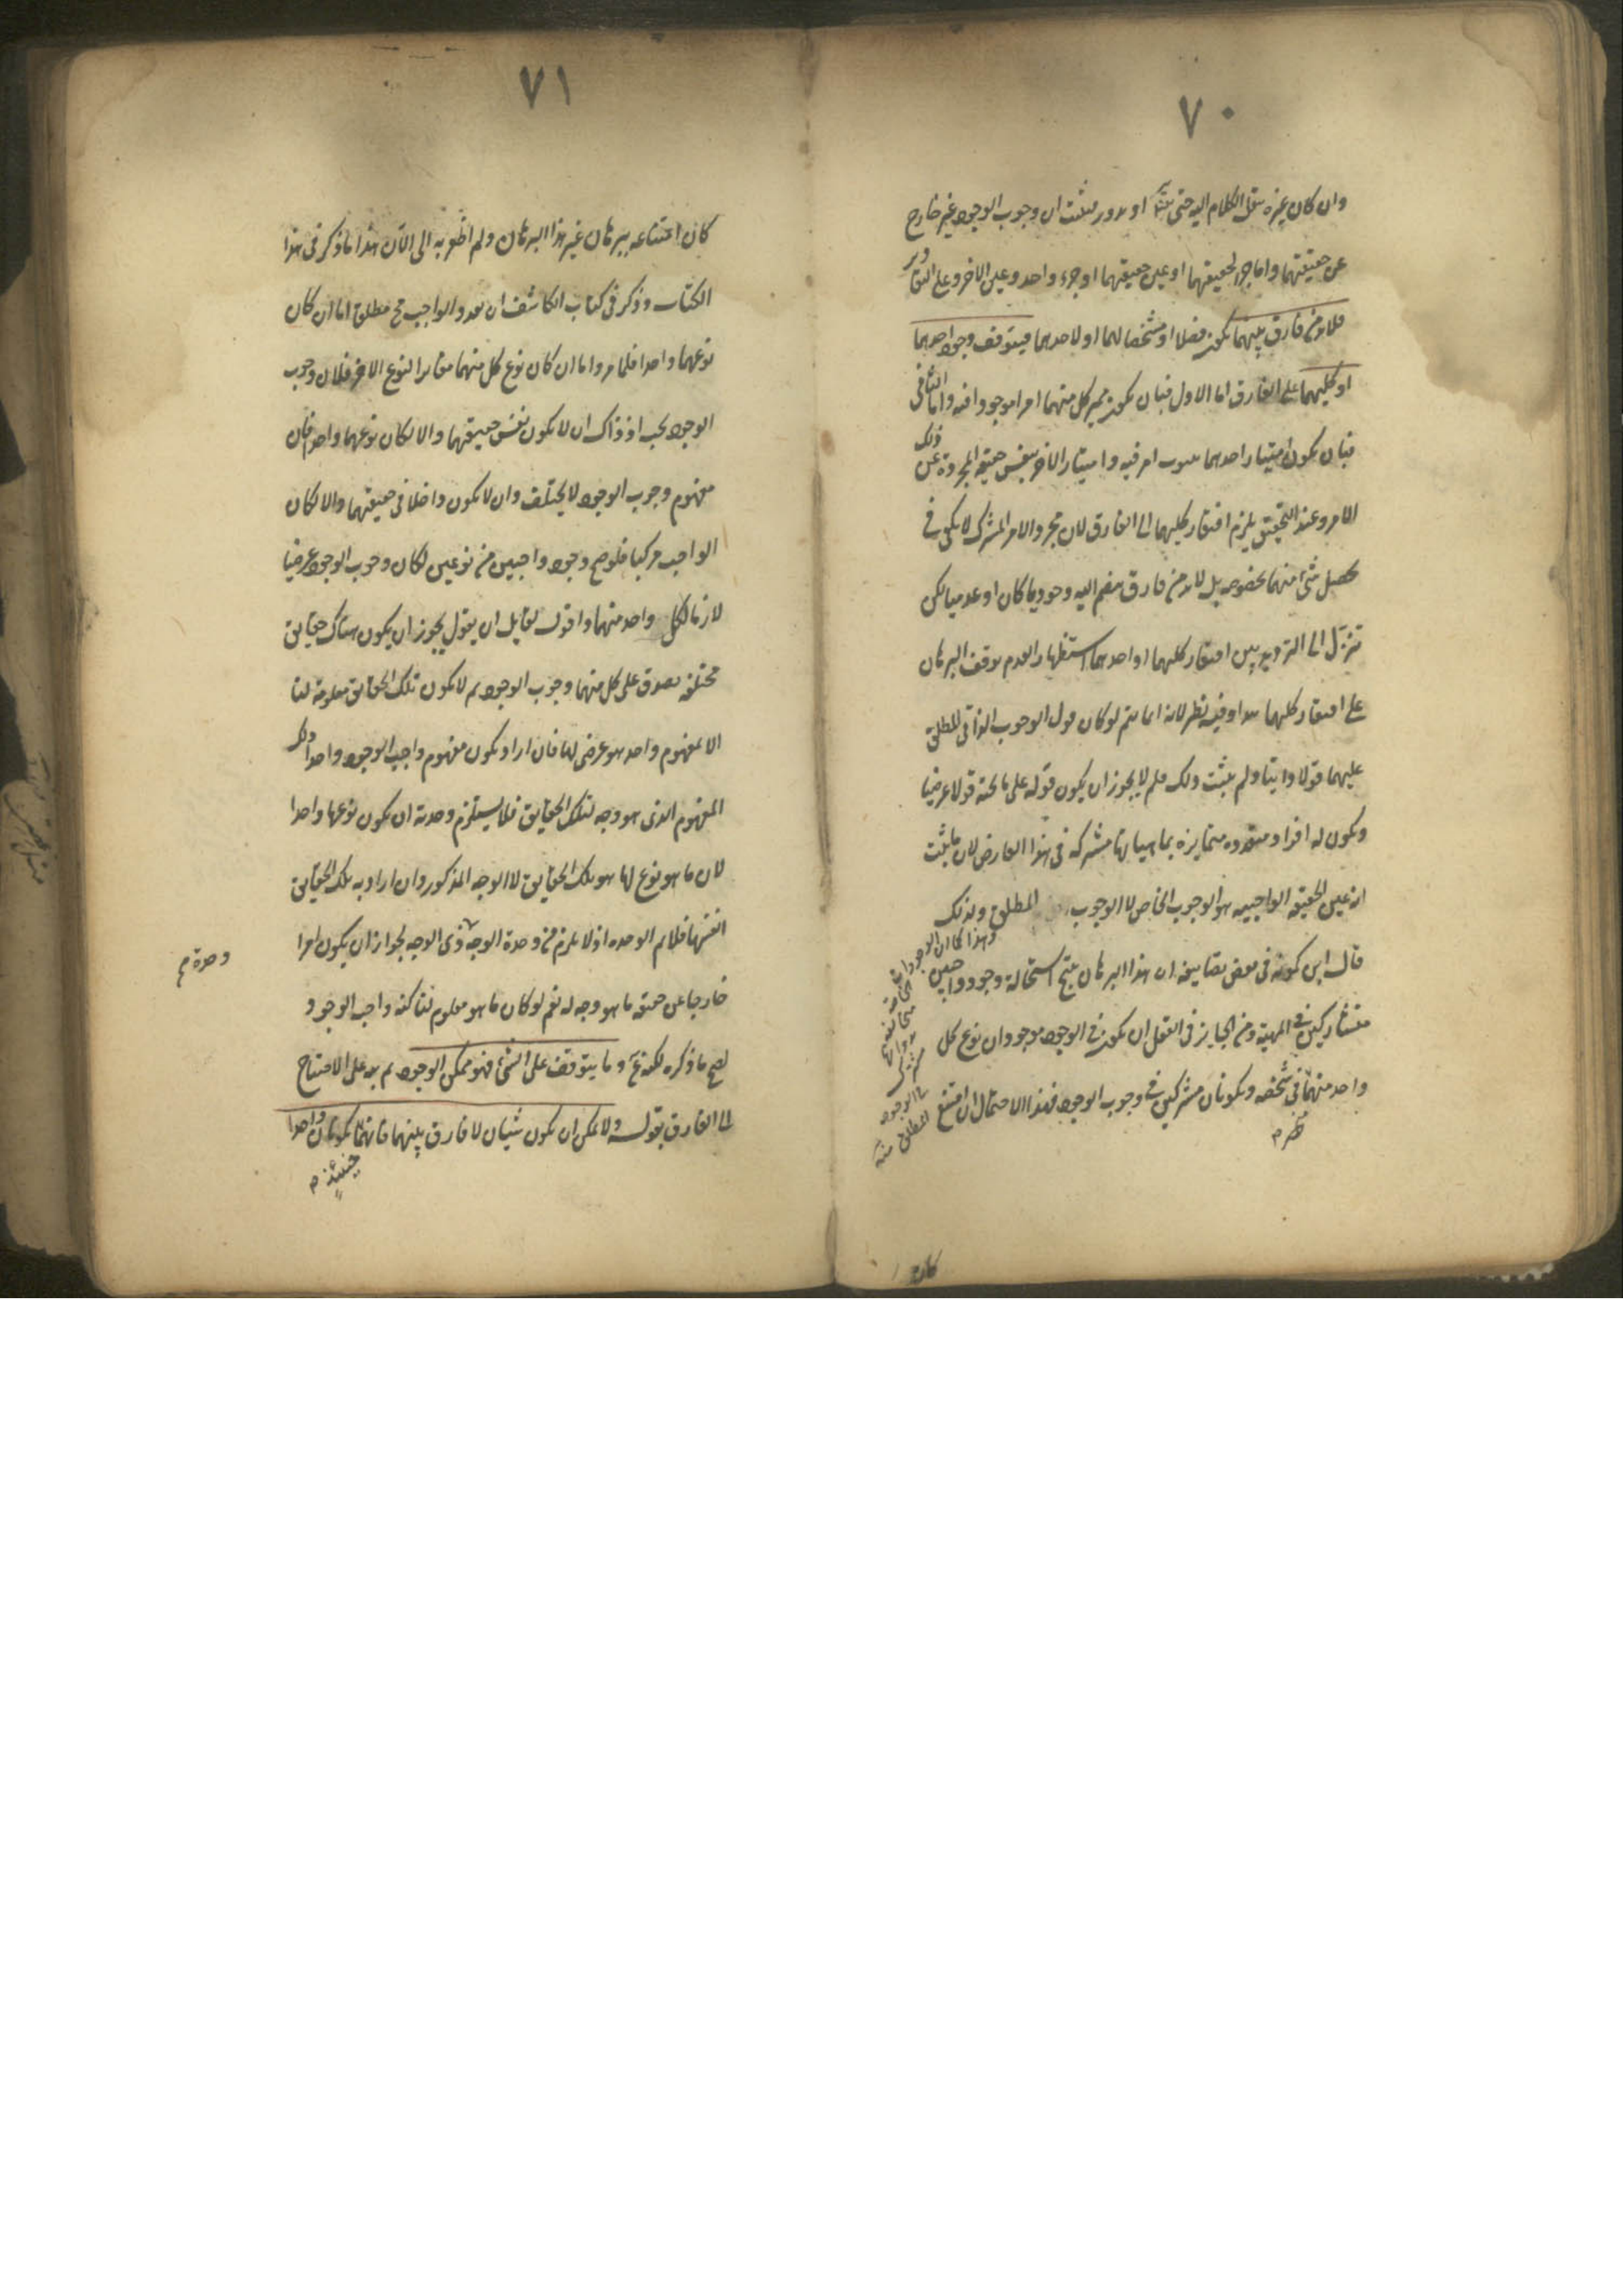 ٧٠
وان كان غيره ينقل الكلام اليه حتى يتسلسل او يدور فيثبت ان وجوب الوجود غير خارج
عن حقيقتهما واما جزء لحقيقتهما او عين حقيقتهما او جزء واحد وعين الاخر وعلى التقادير
فلا بد من فارق بينهما يكون فصلا او مشخصا لهما او لاحدهما فيتوقف وجود احدهما
او كليهما على الفارق اما الاول فبان يكون مميز كل منهما امرا موجودا فيه واما الثاني
فبان يكون امتياز احدهما بثبوت امر فيه وامتياز الاخر بنفس حقيقة المجردة عن ذلك
الامر وعند التحقيق يلزم افتقار كليهما الى الفارق لان مجرد الامر المشترك لا يكفي في
تحصل شئ منهما بخصوصه بل لا بد من فارق ينضم اليه وجوديا كان او عدميا لكن
تنزل الى الترديد بين افتقار كليهما او احدهما استظهارا لعدم توقف البرهان
على افتقار كليهما هذا وفيه نظر لانه انما يتم لو كان قول الوجوب الذاتي المطلق
عليهما قولا ذاتيا ولم يثبت ذلك فلم لا يجوز ان يكون قوله على ما تحته قولا عرضيا
ويكون له افراد متعددة متمايزة بماهياتها مشتركة في هذا العارض لان ما يثبت
انه عين الحقيقة الواجبية هو الوجوب الخاص لا الوجوب المطلق ولذلك
قال ابن كمونة في بعض تصانيفه ان هذا البرهان ينتج استحالة وجود واجبين
متشاركين في المهية ومن الجايز في العقل ان يكون في الوجود موجودان نوع كل
واحد منهما في شخصه ويكونان مشتركين في وجوب الوجود فهذا الاحتمال ان امتنع
وهذا كما ان الوجودات
الخاصة
متخالفة
بذواتها
مشتركة
في الوجود
المطلق منه
كان
٧١
كان امتناعه ببرهان غير هذا البرهان ولم اظفر به الى الآن هذا ما ذكر في هذا
الكتاب وذكر في كتاب الكاشف ان تعدد الواجب مح مطلقا اما ان كان
نوعهما واحدا فلما مر واما ان كان نوع كل منهما مغايرا لنوع الاخر فلان وجوب
الوجود يجب اذ ذاك ان لا يكون نفس حقيقتهما والا لكان نوعهما واحدا فان
مفهوم وجوب الوجود لا يختلف وان لا يكون داخلا في حقيقتهما والا لكان
الواجب مركبا فلو صح وجود واجبين من نوعين لكان وجوب الوجود عرضيا
لازما لكل واحد منهما واقول لقايل ان يقول يجوز ان يكون هناك حقايق
مختلفة يصدق على كل منهما وجوب الوجود ثم لا يكون تلك الحقايق معلومة لنا
الا بمفهوم واحد هو عرضي لها فان اراد بكون مفهوم واجب الوجود واحدا ذلك
المفهوم الذي هو وجه لتلك الحقايق فلا يستلزم وحدته ان يكون نوعها واحدا
لان ما هو نوع لها هو تلك الحقايق لا الوجه المذكور وان اراد به تلك الحقايق
انفسها فلا نم الوحدة اذ لا يلزم من وحدة الوجه ذي الوجه لجواز ان يكون امرا
وحدة م
خارجا عن حقيقة ما هو وجه له نعم لو كان ما هو معلوم لنا كنه واجب الوجود
لصح ما ذكره لكنه مم وما يتوقف على الشئ فهو ممكن الوجود ثم نبه على الاحتياج
الى الفارق بقوله ولا يمكن ان يكون شيئان لا فارق بينهما فانهما يكونان واحدا
حينئذ م